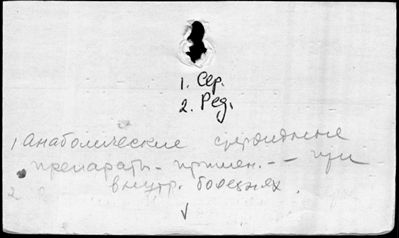 1. Сер.
2. Ред.
1 Анаболические стероидные
препараты - примен. - - при
внутр. болезнях.
2